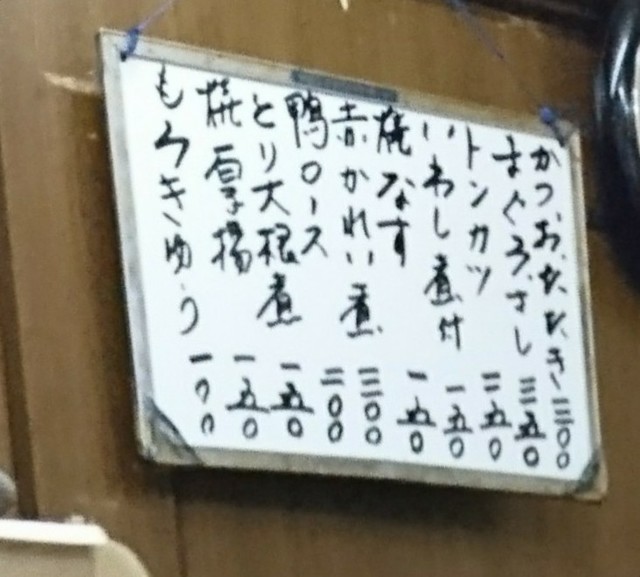 かつおたたき 三〇〇
まぐろさし 三五〇
トンカツ 二五〇
いわし煮付 一五〇
焼なす 一五〇
赤かれい煮 三〇〇
鴨ロース 二〇〇
とり大根煮 一五〇
焼厚揚 一五〇
もろきゅう 一〇〇